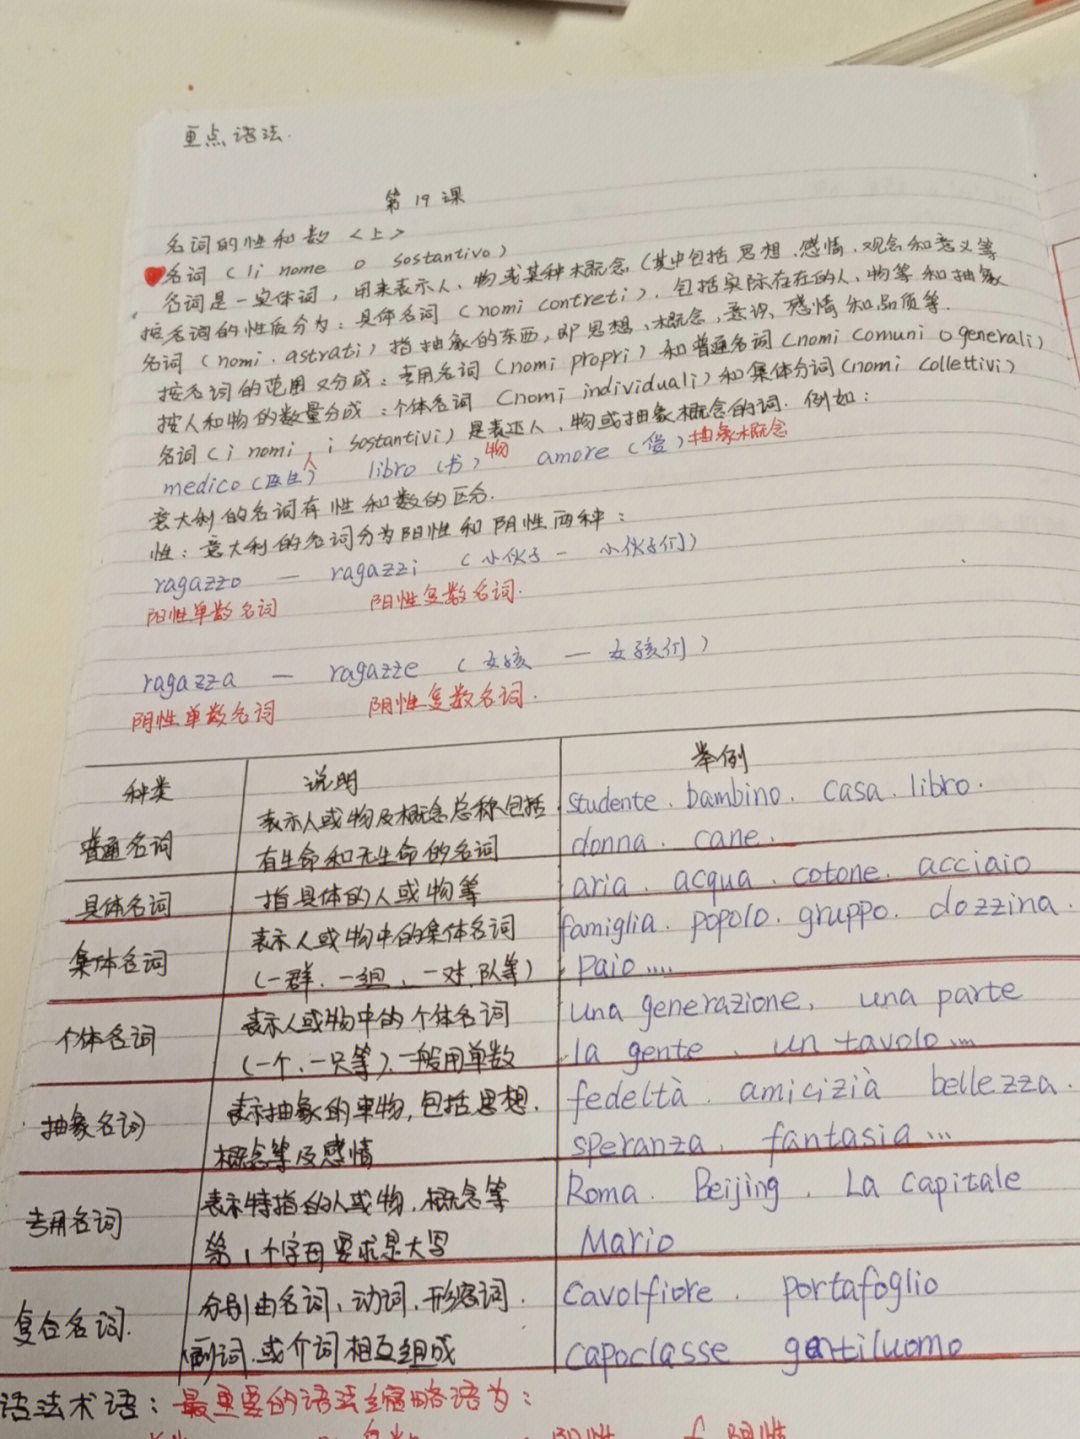 重点语法.
第19课
名词的性和数<上>
名词(li nome o sostantivo)
名词是一实体词,用来表示人、物或某种概念(其中包括思想、感情、观念和意义等
按名词的性质分为:具体名词(nomi contreti),包括实际存在在的人、物等和抽象
名词(nomi. astrati)指抽象的东西,即思想、概念、意识、感情和品质等.
按名词的范围又分成:专用名词(nomi propri)和普通名词(nomi comuni o generali)
按人和物的数量分成:个体名词(nomi individuali)和集体分词(nomi collettivi)
名词(i nomi, i sostantivi)是表达人、物或抽象概念的词.例如:
medico(医生)人 libro(书)物 amore(爱)抽象概念
意大利的名词有性和数的区分.
性:意大利的名词分为阳性和阴性两种:
ragazzo — ragazzi (小伙子 - 小伙子们)
阳性单数名词 阳性复数名词.
ragazza — ragazze (女孩 — 女孩们)
阴性单数名词 阴性复数名词.
种类 说明 举例
普通名词 表示人或物及概念总称,包括 studente. bambino. casa. libro.
有生命和无生命的名词 donna. cane.
具体名词 指具体的人或物等 aria. acqua. cotone. acciaio
集体名词 表示人或物中的集体名词 famiglia. popolo. gruppo. dozzina.
(一群、一组、一对、队等) paio....
个体名词 表示人或物中的个体名词 una generazione, una parte
(一个、一只等)、一般用单数 la gente、un tavolo...
抽象名词 表示抽象的事物,包括思想. fedeltà. amicizià bellezza.
概念等及感情 speranza. fantasia...
专用名词 表示特指的人或物、概念等 Roma. Beijing. La capitale
第1个字母要求是大写 Mario
复合名词. 分别由名词、动词、形容词. cavolfiore. portafoglio
副词、或介词相互组成 capoclasse gentiluomo
语法术语:最重要的语法缩略语为: